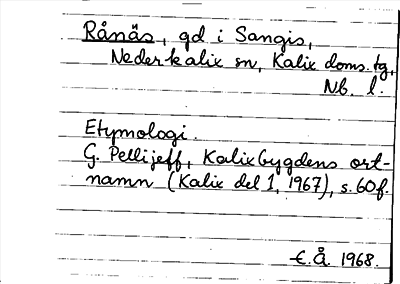 Rånäs, gd i Sangis,
Nederkalix sn, Kalix doms. tg,
Nb. l.
Etymologi.
G. Pellijeff, Kalixbygdens ort-
namn (Kalix del 1, 1967), s. 60f.
E.Å. 1968.